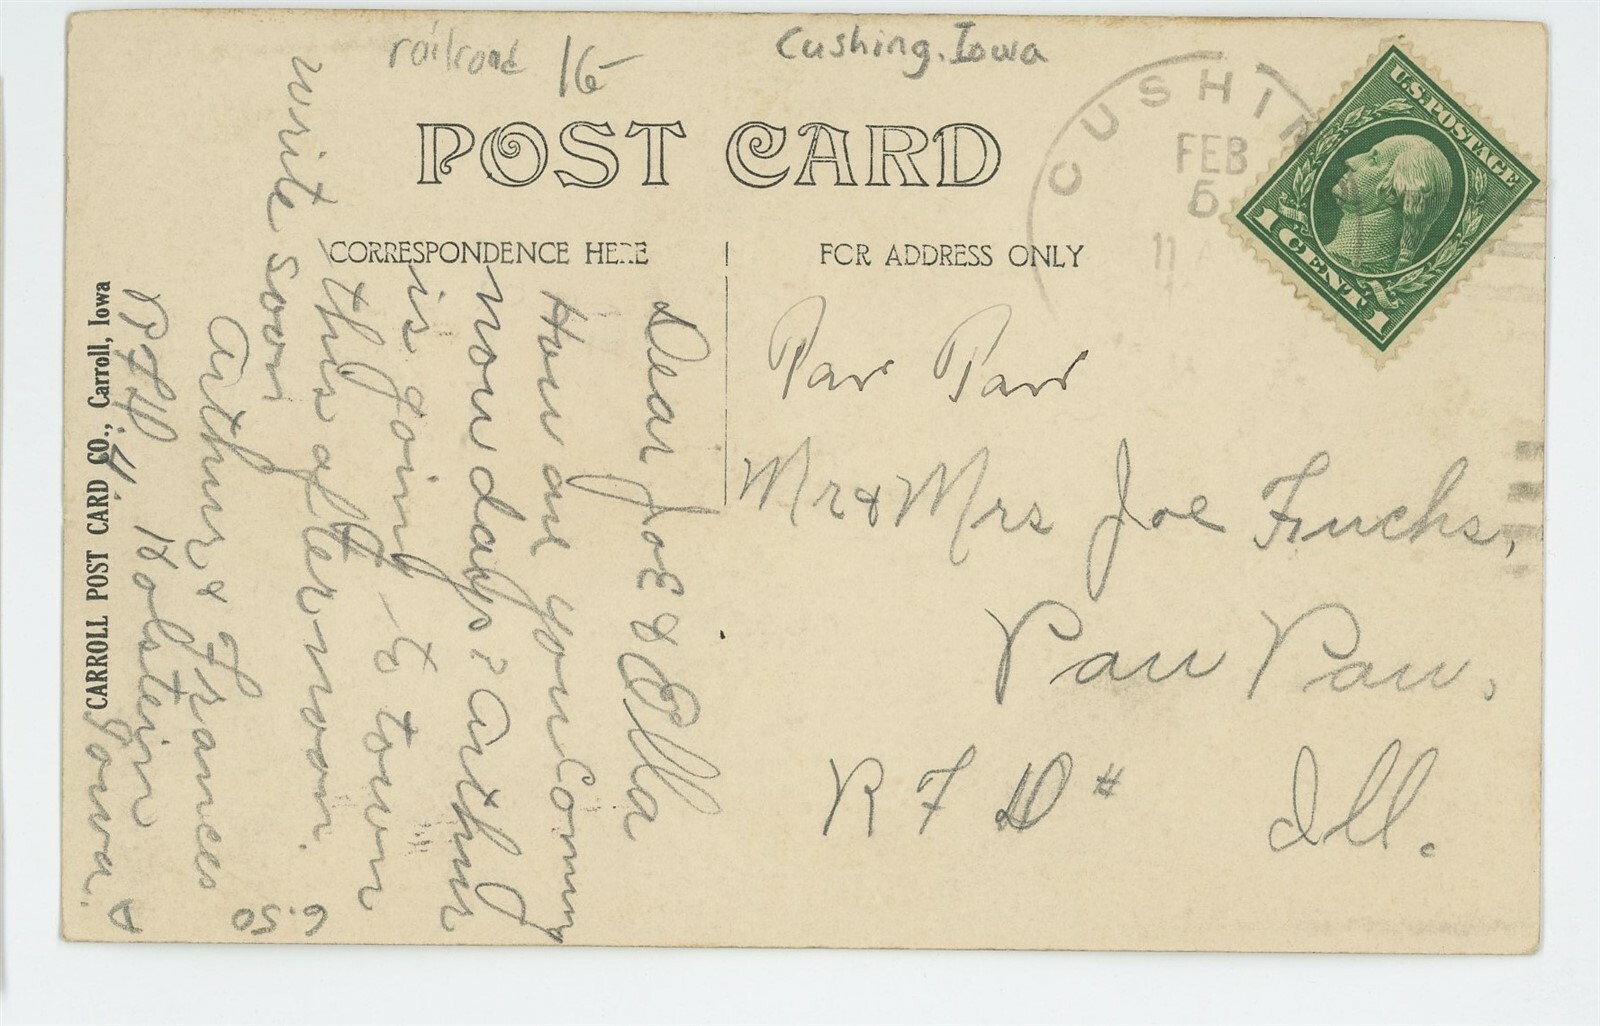 railroad 16-
Cushing, Iowa
POST CARD
CORRESPONDENCE HERE
FOR ADDRESS ONLY
CUSHIN
FEB
5
11 A
U.S. POSTAGE
1 CENT 1
Dear Joe & Ella
How are you coming
now days? Arthur
is going to town
this afternoon.
write soon
Arthur & Frances
Holstein
Iowa.
6.50
CARROLL POST CARD CO., Carroll, Iowa
Paw Paw
Mr & Mrs Joe Fuchs,
Paw Paw,
R F D #
Ill.